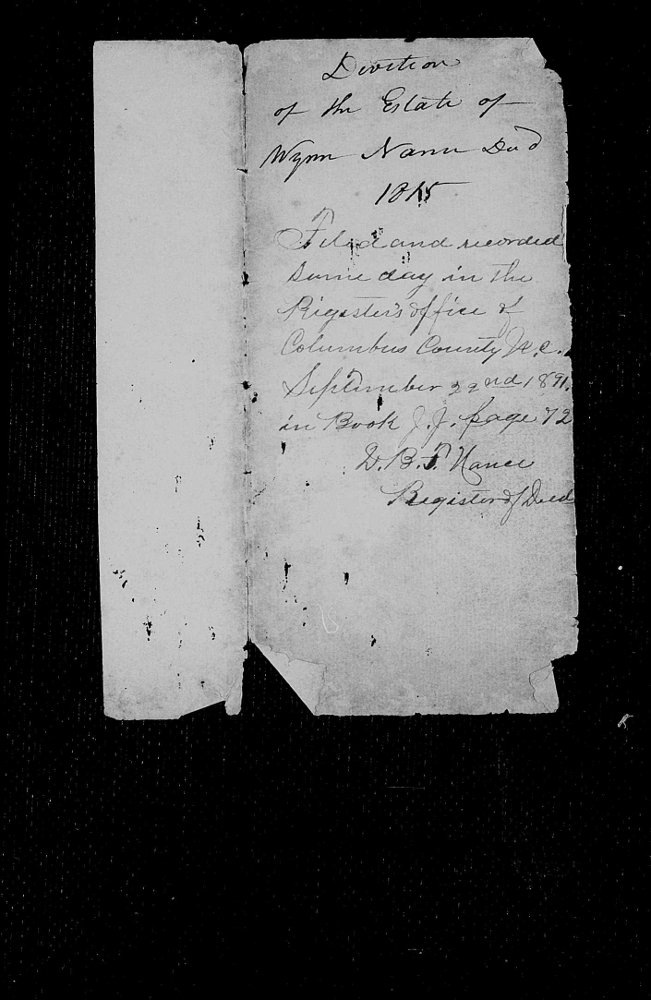 Divition
of the Estate of
Wynn Nance Decd
1815
Filed and recorded
same day in the
Register's office of
Columbus County N.C.
September 22nd 1891.
in Book J.J. page 72
D.B.F. Nance
Register of Deed